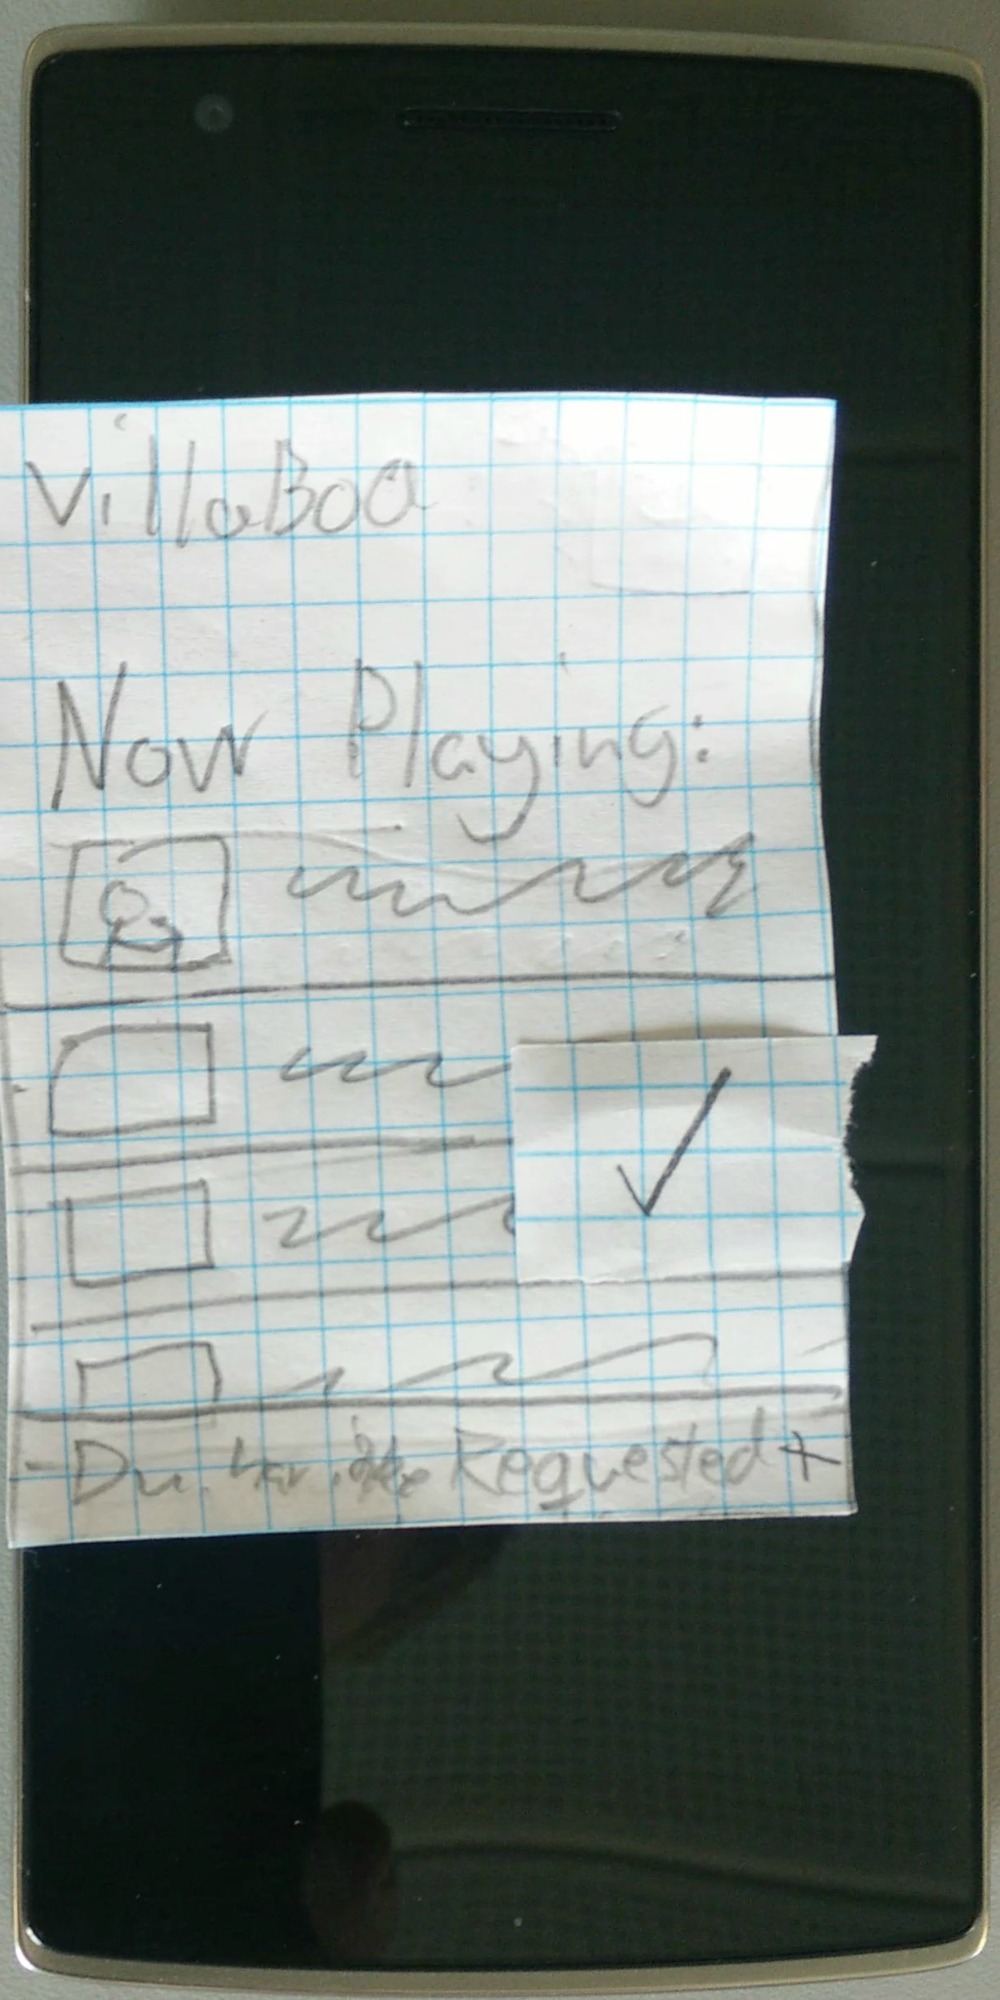 VillaBoa
Now Playing:
Du har ikke Requested +